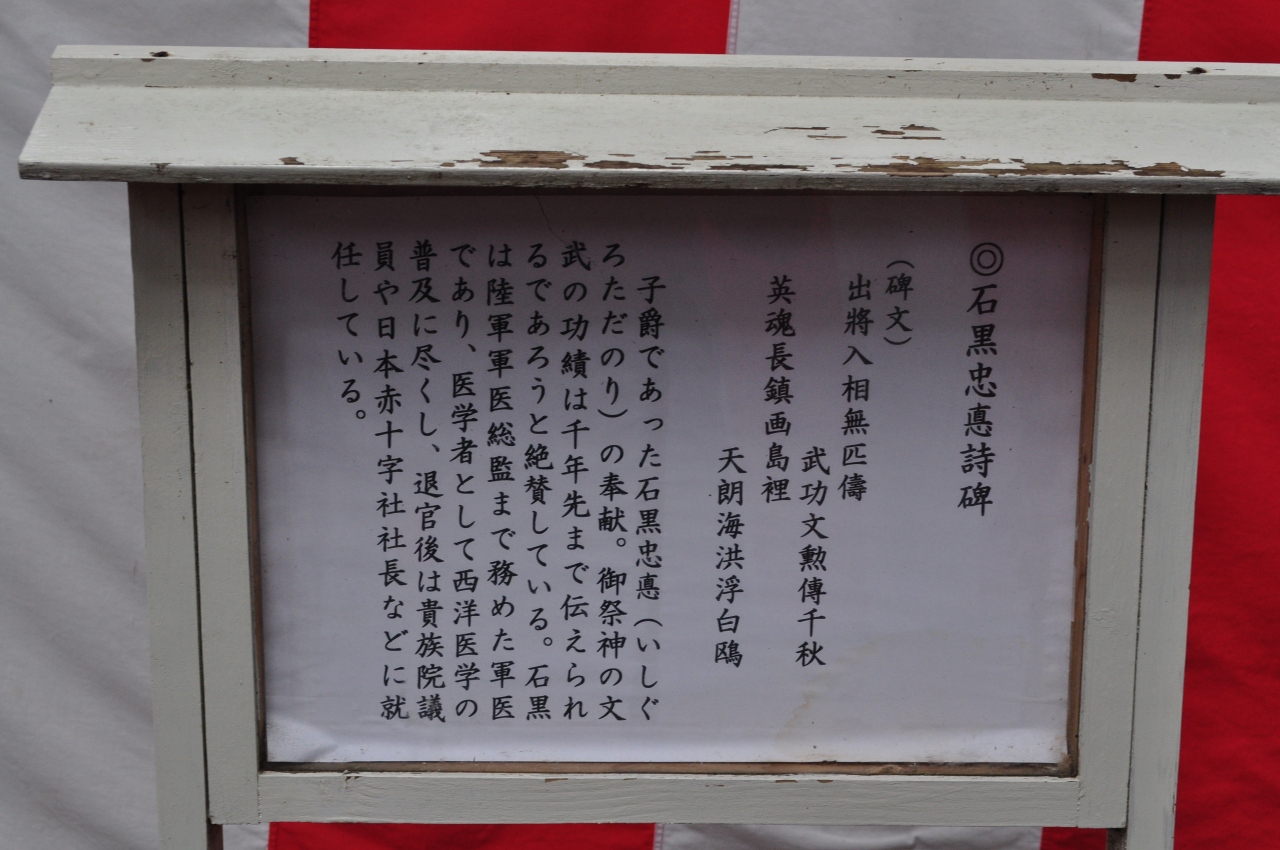 ◎石黒忠悳詩碑
（碑文）
出將入相無匹儔
武功文勲傳千秋
英魂長鎮画島裡
天朗海洪浮白鴎
子爵であった石黒忠悳（いしぐ
ろただのり）の奉献。御祭神の文
武の功績は千年先まで伝えられ
るであろうと絶賛している。石黒
は陸軍軍医総監まで務めた軍医
であり、医学者として西洋医学の
普及に尽くし、退官後は貴族院議
員や日本赤十字社社長などに就
任している。